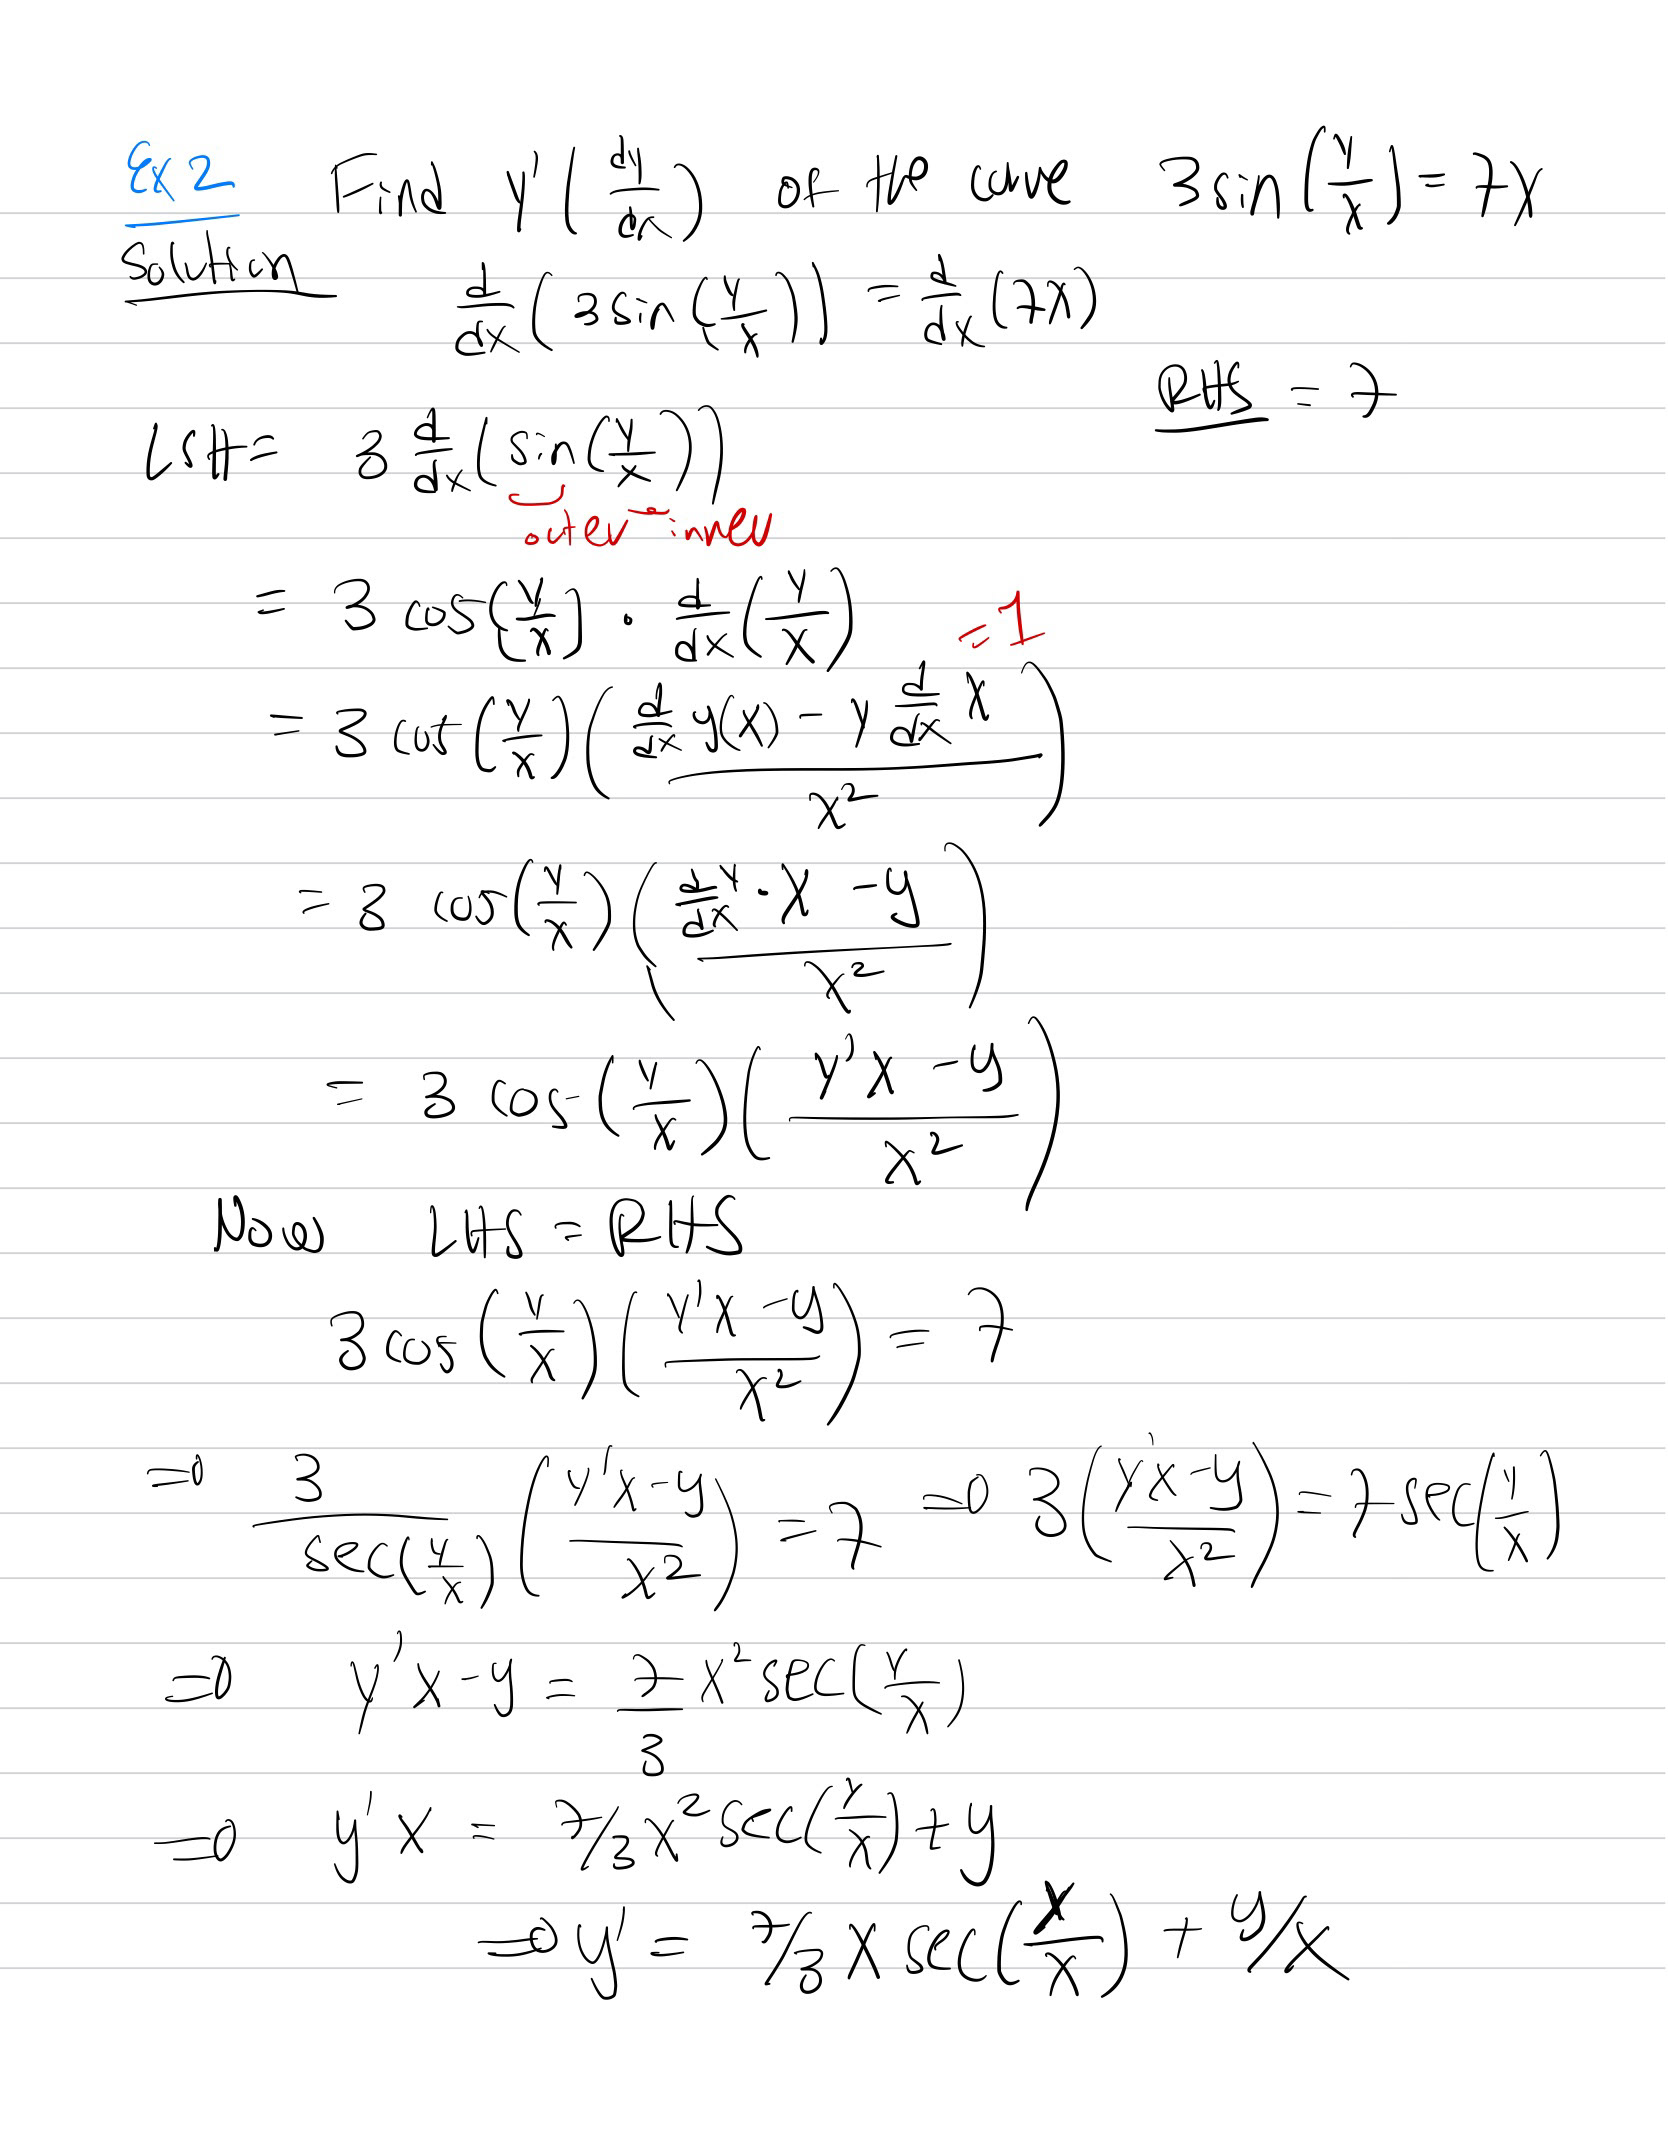 Ex 2 Find y' (dy/dx) of the curve 3 sin(y/x) = 7x
Solution d/dx (3 sin(y/x)) = d/dx (7x)
RHS = 7
LSH = 3 d/dx (sin(y/x))
outer inner
= 3 cos(y/x) · d/dx (y/x)
= 1
= 3 cos(y/x) ((d/dx y(x) - y d/dx x)/x²)
= 3 cos(y/x) ((dy/dx · x - y)/x²)
= 3 cos(y/x) ((y'x - y)/x²)
Now LHS = RHS
3 cos(y/x) ((y'x - y)/x²) = 7
⇒ 3/sec(y/x) ((y'x - y)/x²) = 7 ⇒ 3 ((y'x - y)/x²) = 7 sec(y/x)
⇒ y'x - y = 7/3 x² sec(y/x)
⇒ y'x = 7/3 x² sec(y/x) + y
⇒ y' = 7/3 x sec(x/x) + y/x